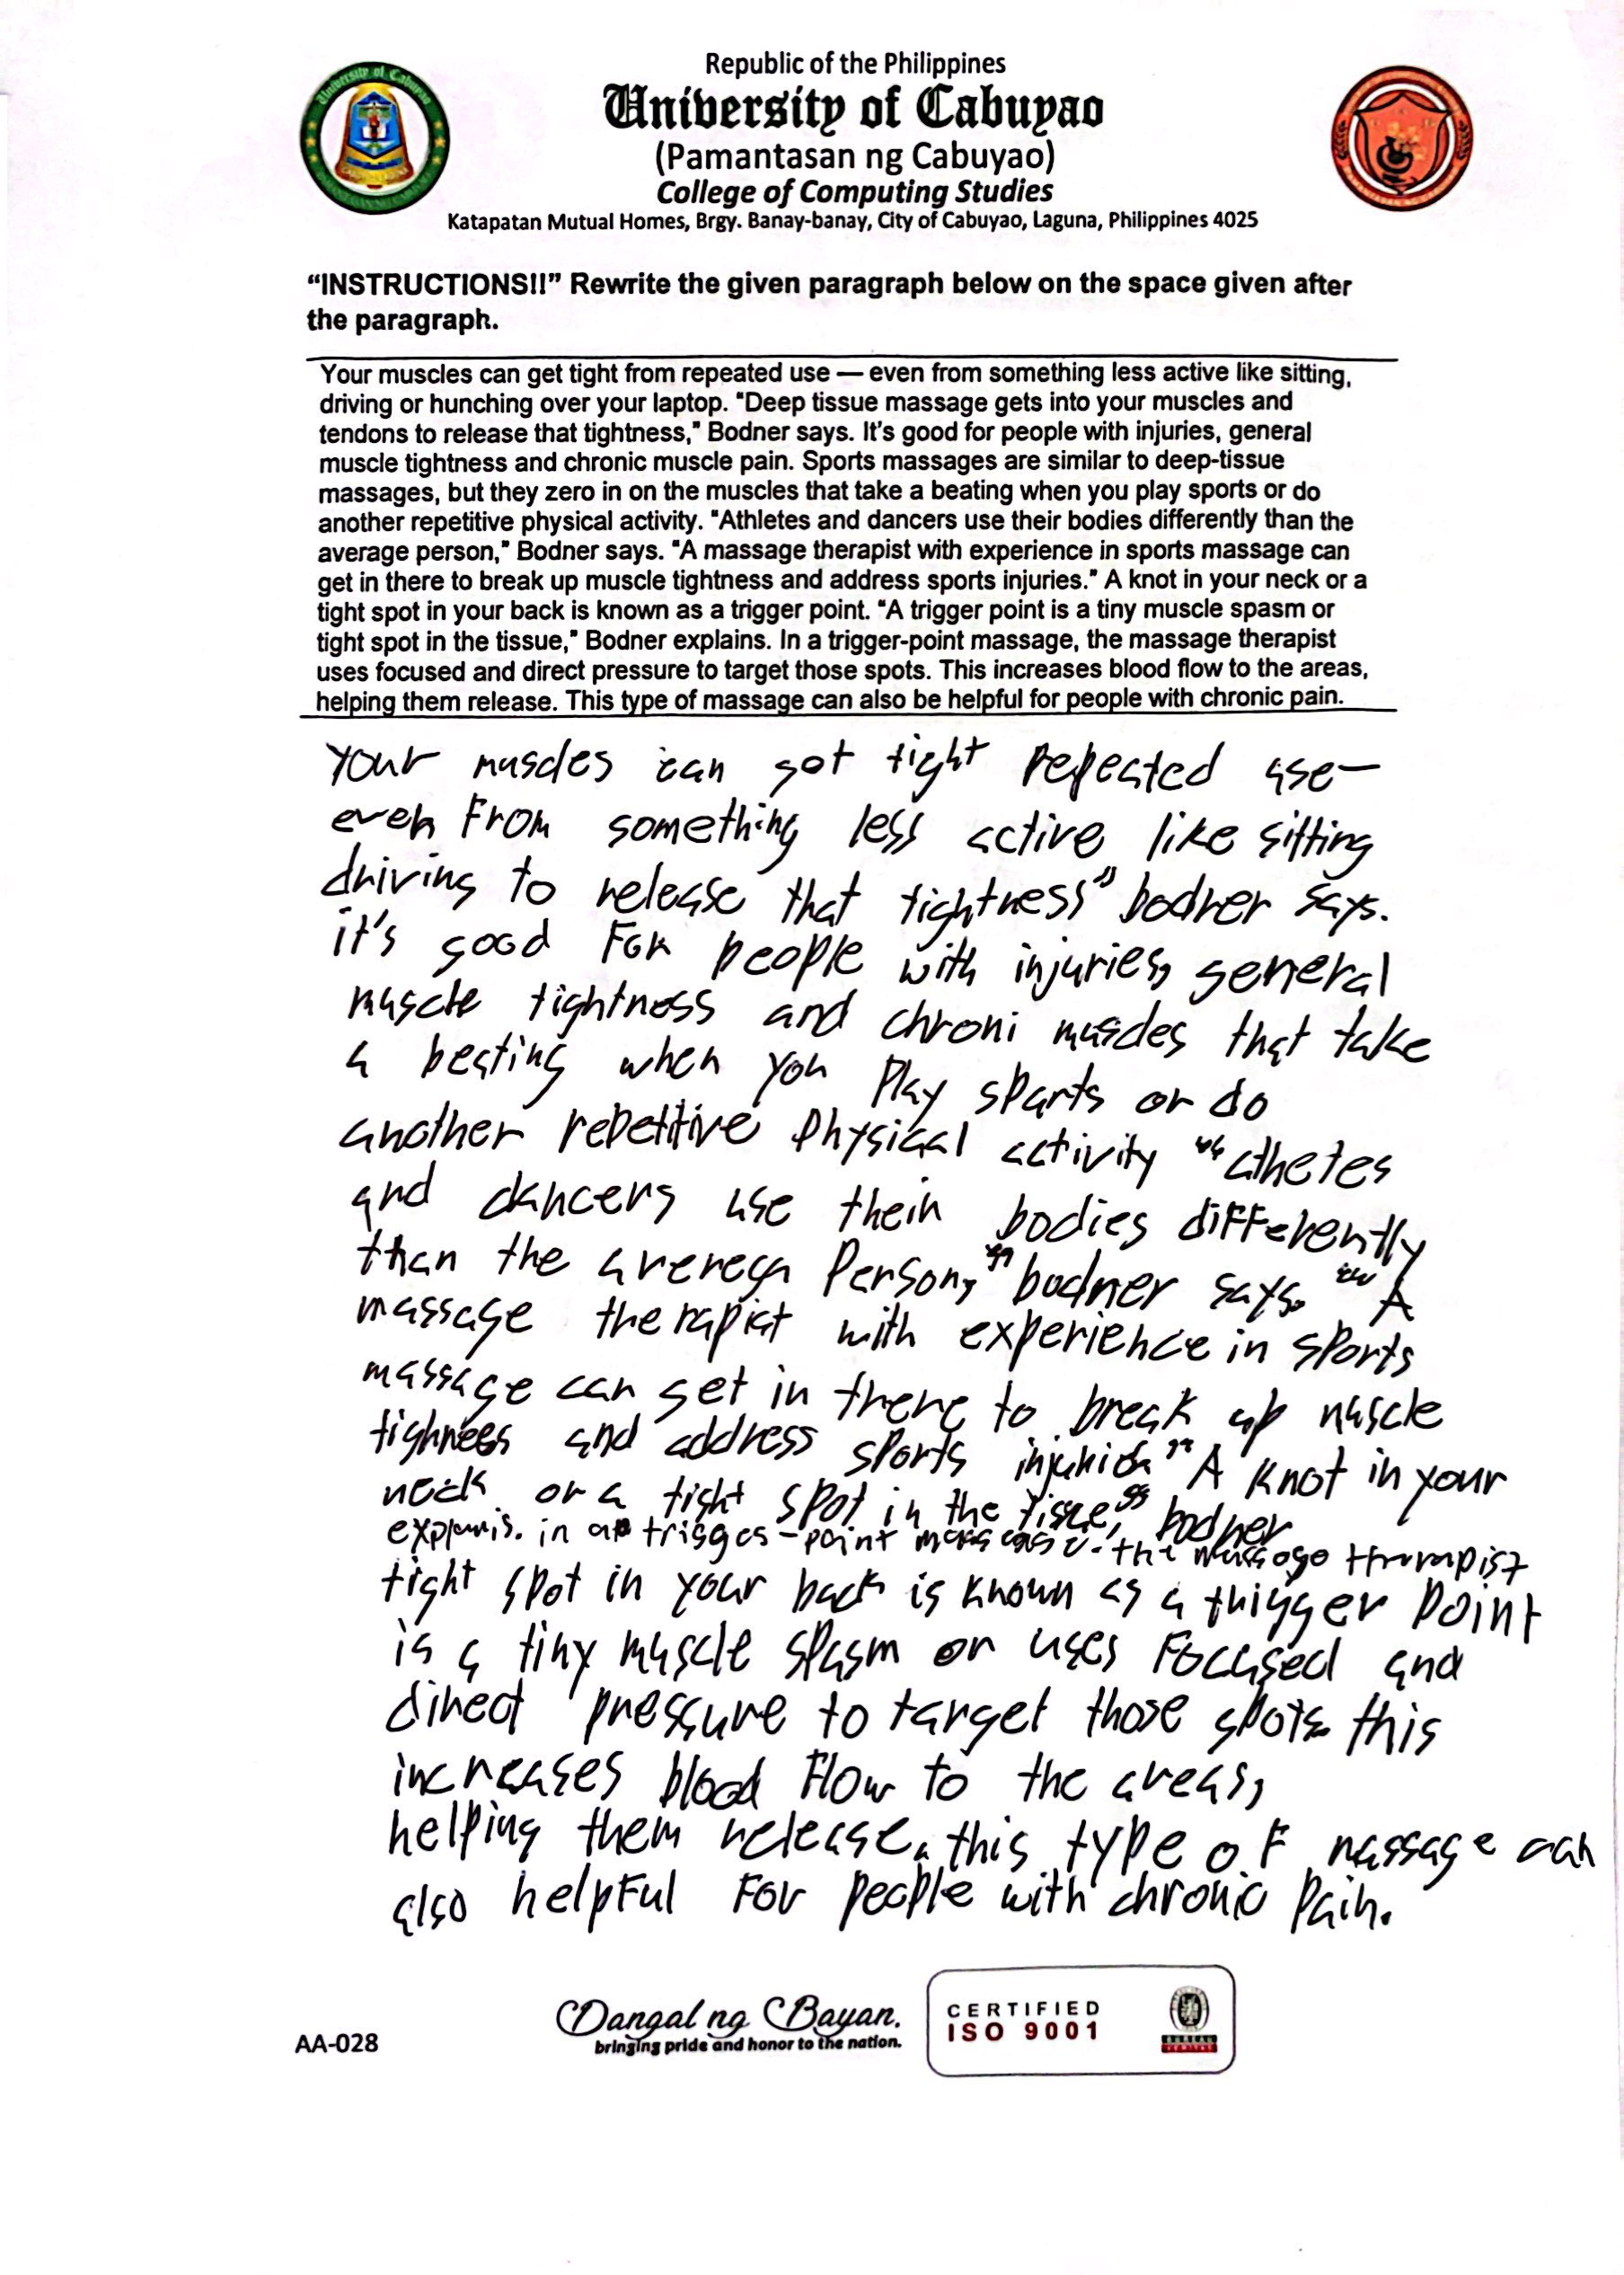 Republic of the Philippines
University of Cabuyao
(Pamantasan ng Cabuyao)
College of Computing Studies
Katapatan Mutual Homes, Brgy. Banay-banay, City of Cabuyao, Laguna, Philippines 4025
“INSTRUCTIONS!!” Rewrite the given paragraph below on the space given after
the paragraph.
Your muscles can get tight from repeated use — even from something less active like sitting,
driving or hunching over your laptop. "Deep tissue massage gets into your muscles and
tendons to release that tightness," Bodner says. It's good for people with injuries, general
muscle tightness and chronic muscle pain. Sports massages are similar to deep-tissue
massages, but they zero in on the muscles that take a beating when you play sports or do
another repetitive physical activity. "Athletes and dancers use their bodies differently than the
average person," Bodner says. "A massage therapist with experience in sports massage can
get in there to break up muscle tightness and address sports injuries." A knot in your neck or a
tight spot in your back is known as a trigger point. "A trigger point is a tiny muscle spasm or
tight spot in the tissue," Bodner explains. In a trigger-point massage, the massage therapist
uses focused and direct pressure to target those spots. This increases blood flow to the areas,
helping them release. This type of massage can also be helpful for people with chronic pain.
Your muscles can got tight repeated use—
even From something less active like sitting
driving to release that tightness" bodner says.
it's good For people with injuries, general
muscle tightness and chroni muscles that take
a beating when you Play sports or do
another repetitive physical activity " athetes
and dancers use their bodies differently
than the averega Person, " bodner says. " A
massage therapist with experience in sports
massage can get in there to break up muscle
tighness and address sports " A knot in your
neck or a tight spot in the tissue," bodner
in a trigges-point the therapist
tight spot in your back is known as a trigger point
is a tiny muscle spasm or uses Focused and
direct pressure to target those spots. this
increases blood Flow to the areas,
helping them release. this type oF massage can
also helpFul For people with chronic Pain.
Dangal ng Bayan.
bringing pride and honor to the nation.
AA-028
CERTIFIED
ISO 9001